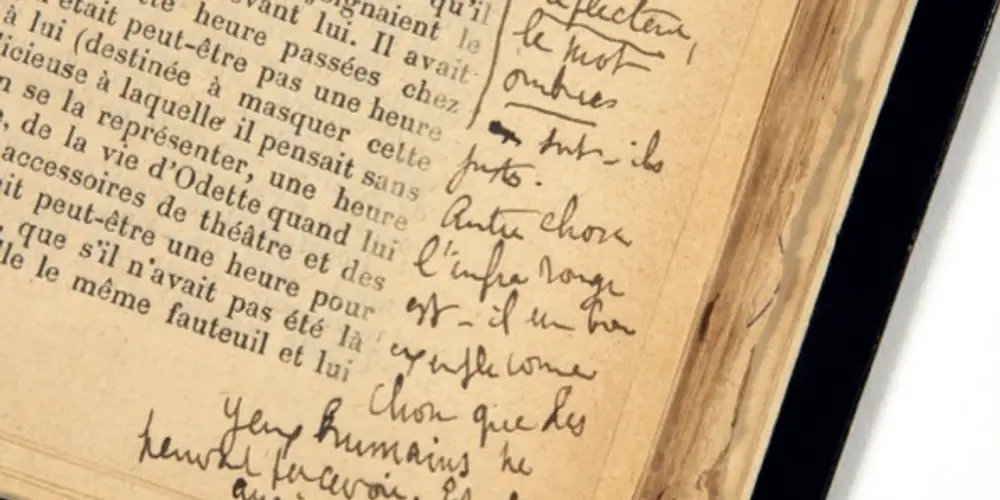 qu'il
joignaient le
devant lui. Il avait
heure passées chez
était peut-être pas une heure
à lui (destinée à masquer cette
icieuse à laquelle il pensait sans
n se la représenter, une heure
, de la vie d'Odette quand lui
accessoires de théâtre et des
ait peut-être une heure pour
, que s'il n'avait pas été là
lle le même fauteuil et lui
le mot
ombres
sont-ils
justes.
Autre chose
l'infra rouge
est-il un bon
exemple comme
chose que des
yeux humains ne
peuvent percevoir.